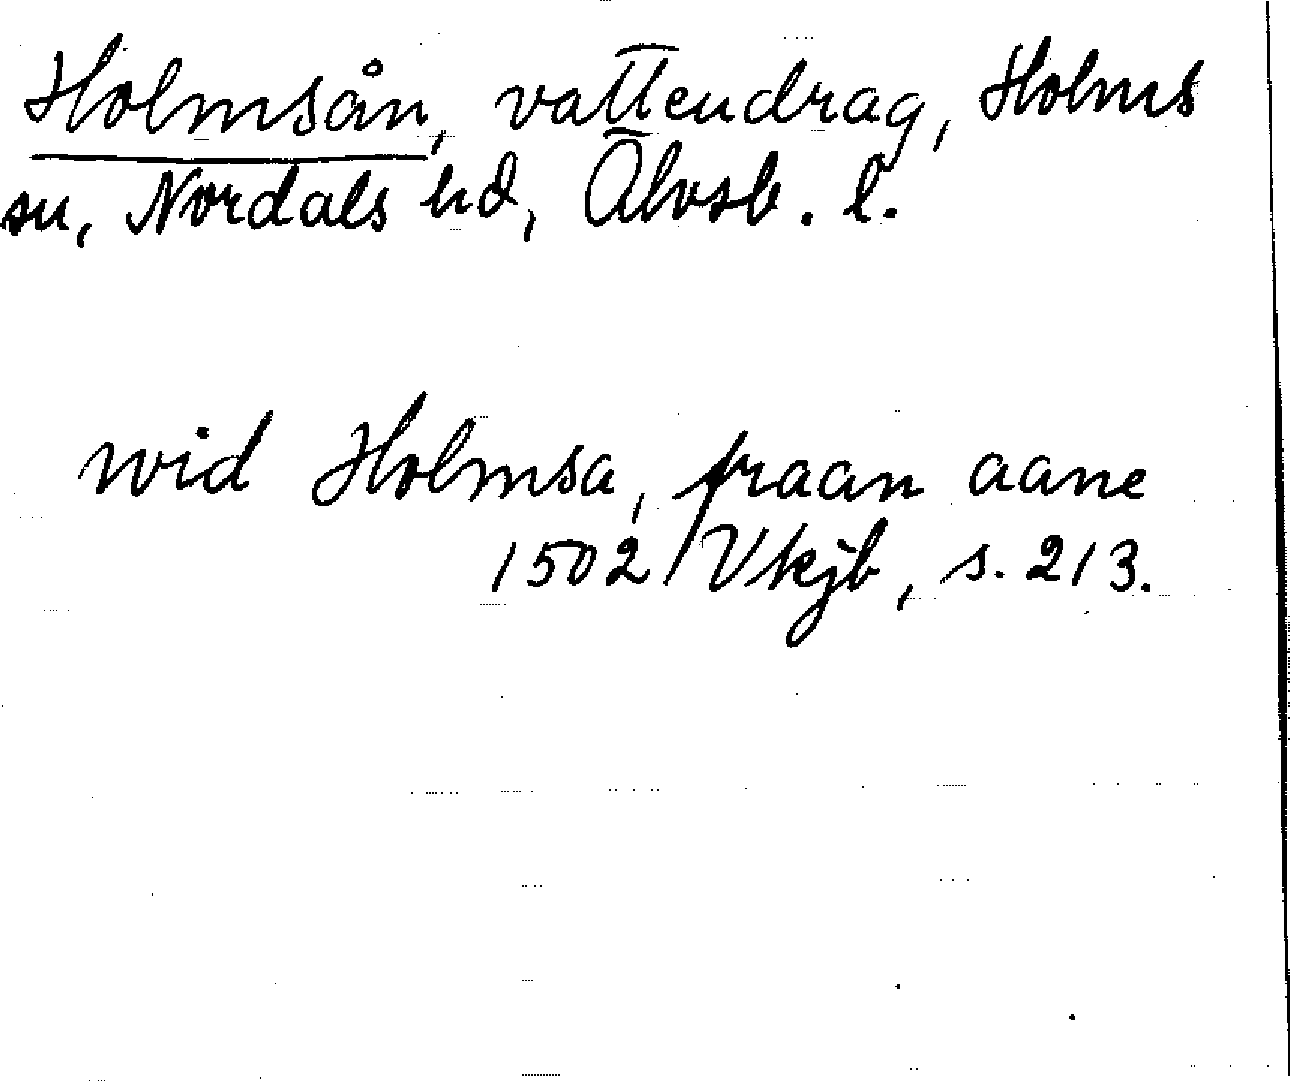 Holmsån, vattendrag, Holms
sn, Nordals hd, Älvsb. l.
wid Holmsa, fraan aane
1502 Vkjb, s. 213.